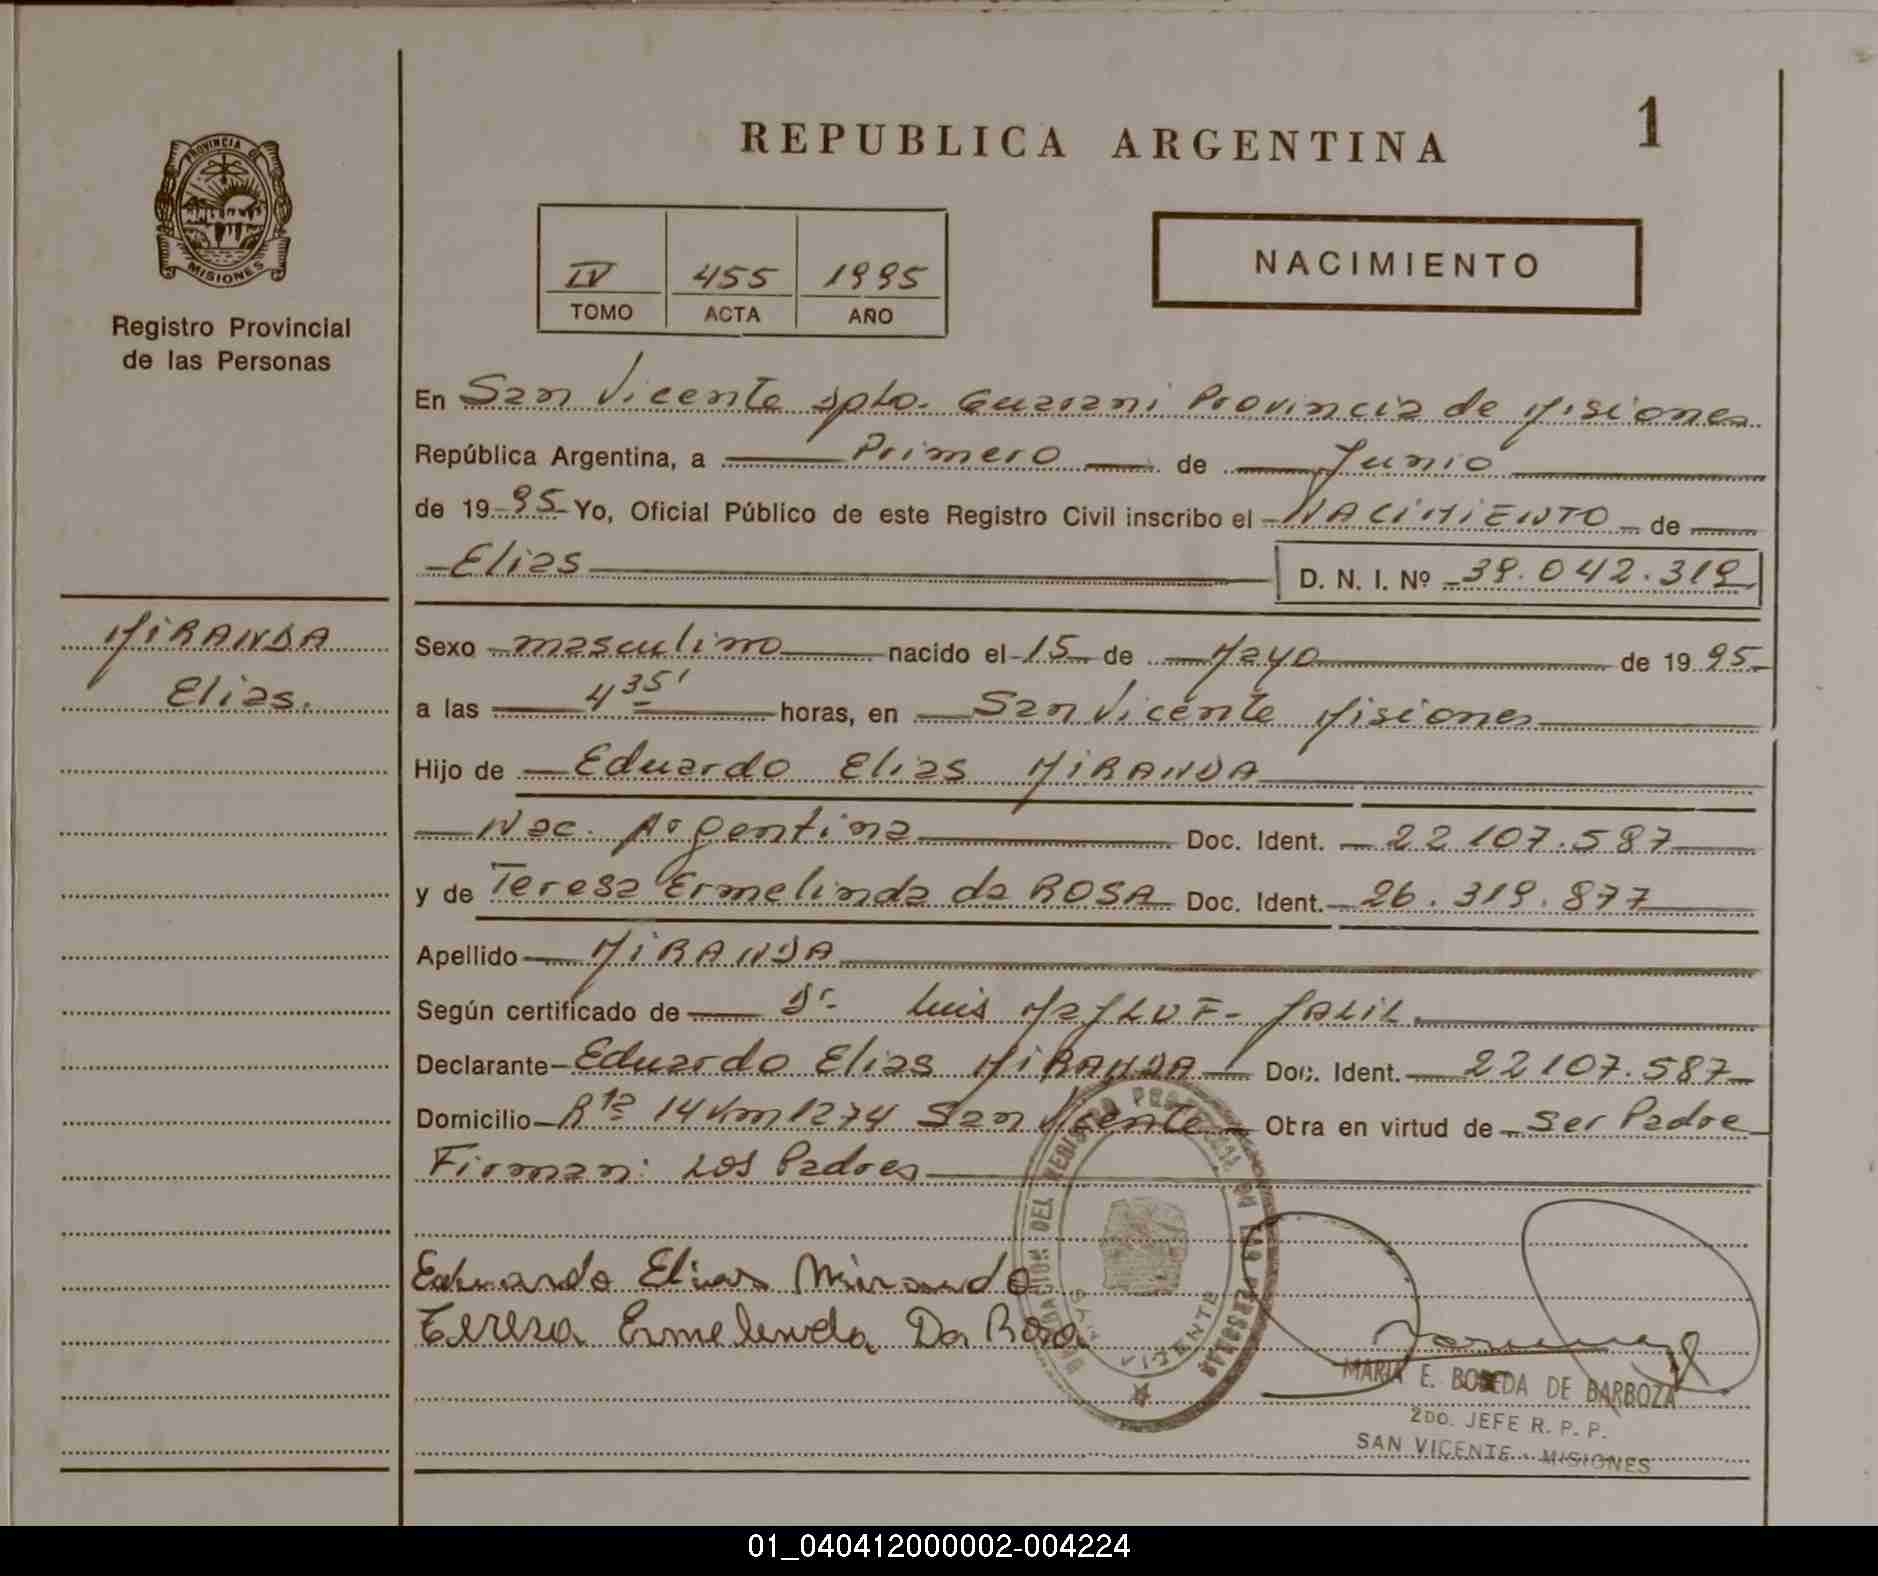 PROVINCIA DE
MISIONES
Registro Provincial
de las Personas
MIRANDA
Elias.
REPUBLICA ARGENTINA
1
IV 455 1995
TOMO ACTA AÑO
NACIMIENTO
En San Vicente Dpto. Guarani Provincia de Misiones
República Argentina, a Primero de Junio
de 1995 Yo, Oficial Público de este Registro Civil inscribo el NACIMIENTO de
Elias D. N. I. Nº 39.042.319
Sexo masculino nacido el 15 de Mayo de 1995
a las 4 35' horas, en San Vicente Misiones
Hijo de Eduardo Elias MIRANDA
Nac. Argentina Doc. Ident. 22107.587
y de Teresa Ermelinda da ROSA Doc. Ident. 26.319.877
Apellido MIRANDA
Según certificado de Dr. Luis JALIL.
Declarante Eduardo Elias MIRANDA Doc. Ident. 22107.587
Domicilio Rta 14 Km 1274 San Vicente Obra en virtud de Ser Padre
Firman: Los Padres
Eduardo Elias Miranda
Teresa Ermelinda Da Rosa
DEL REGISTRO PROVINCIAL DE LAS PERSONAS
VICENTE
MARIA E. BOBEDA DE BARBOZA
2DO. JEFE R. P. P.
SAN VICENTE - MISIONES
01_040412000002-004224